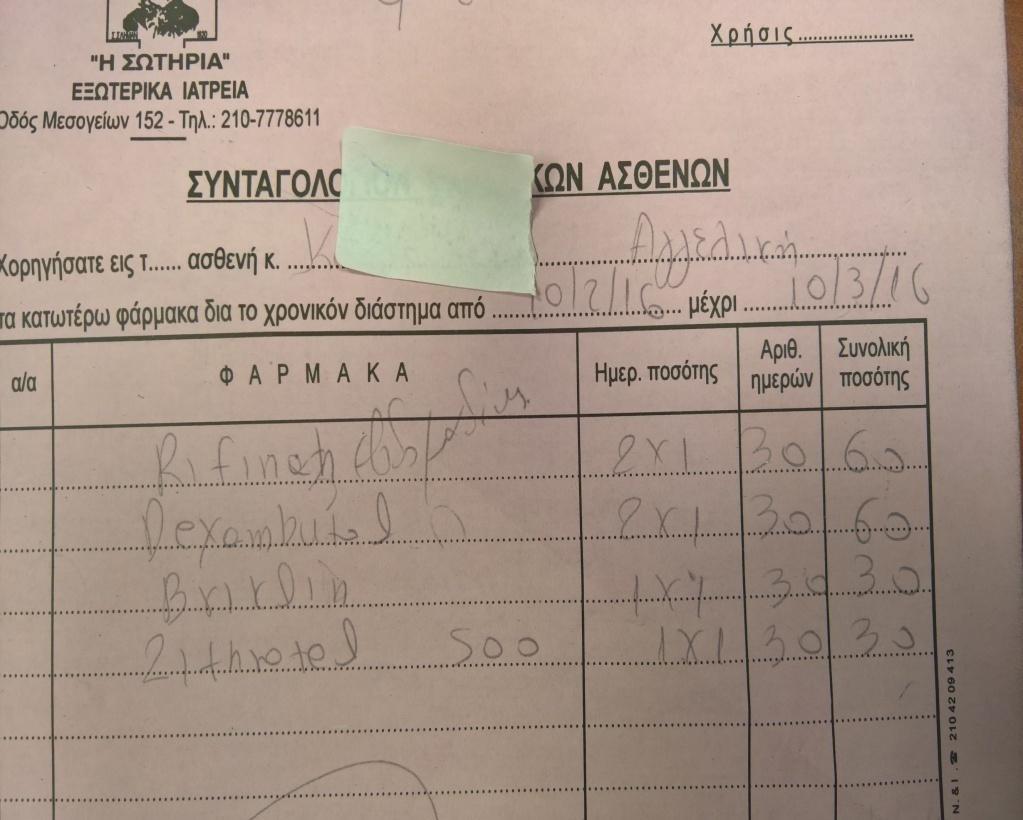 Χρήσις
"Η ΣΩΤΗΡΙΑ"
ΕΞΩΤΕΡΙΚΑ ΙΑΤΡΕΙΑ
Οδός Μεσογείων 152 - Τηλ.: 210-7778611
ΣΥΝΤΑΓΟΛΟ ΚΩΝ ΑΣΘΕΝΩΝ
Χορηγήσατε εις τ...... ασθενή κ. Κ Αγγελική
τα κατωτέρω φάρμακα δια το χρονικόν διάστημα από 10/2/16 μέχρι 10/3/16
α/α ΦΑΡΜΑΚΑ Ημερ. ποσότης Αριθ. ημερών Συνολική ποσότης
Rifinah 2x1 30 60
Dexambutol 2x1 30 60
1x1 30 30
Zithrotel 500 1x1 30 30
Ν. & Ι. ☎ 210 42 09 413